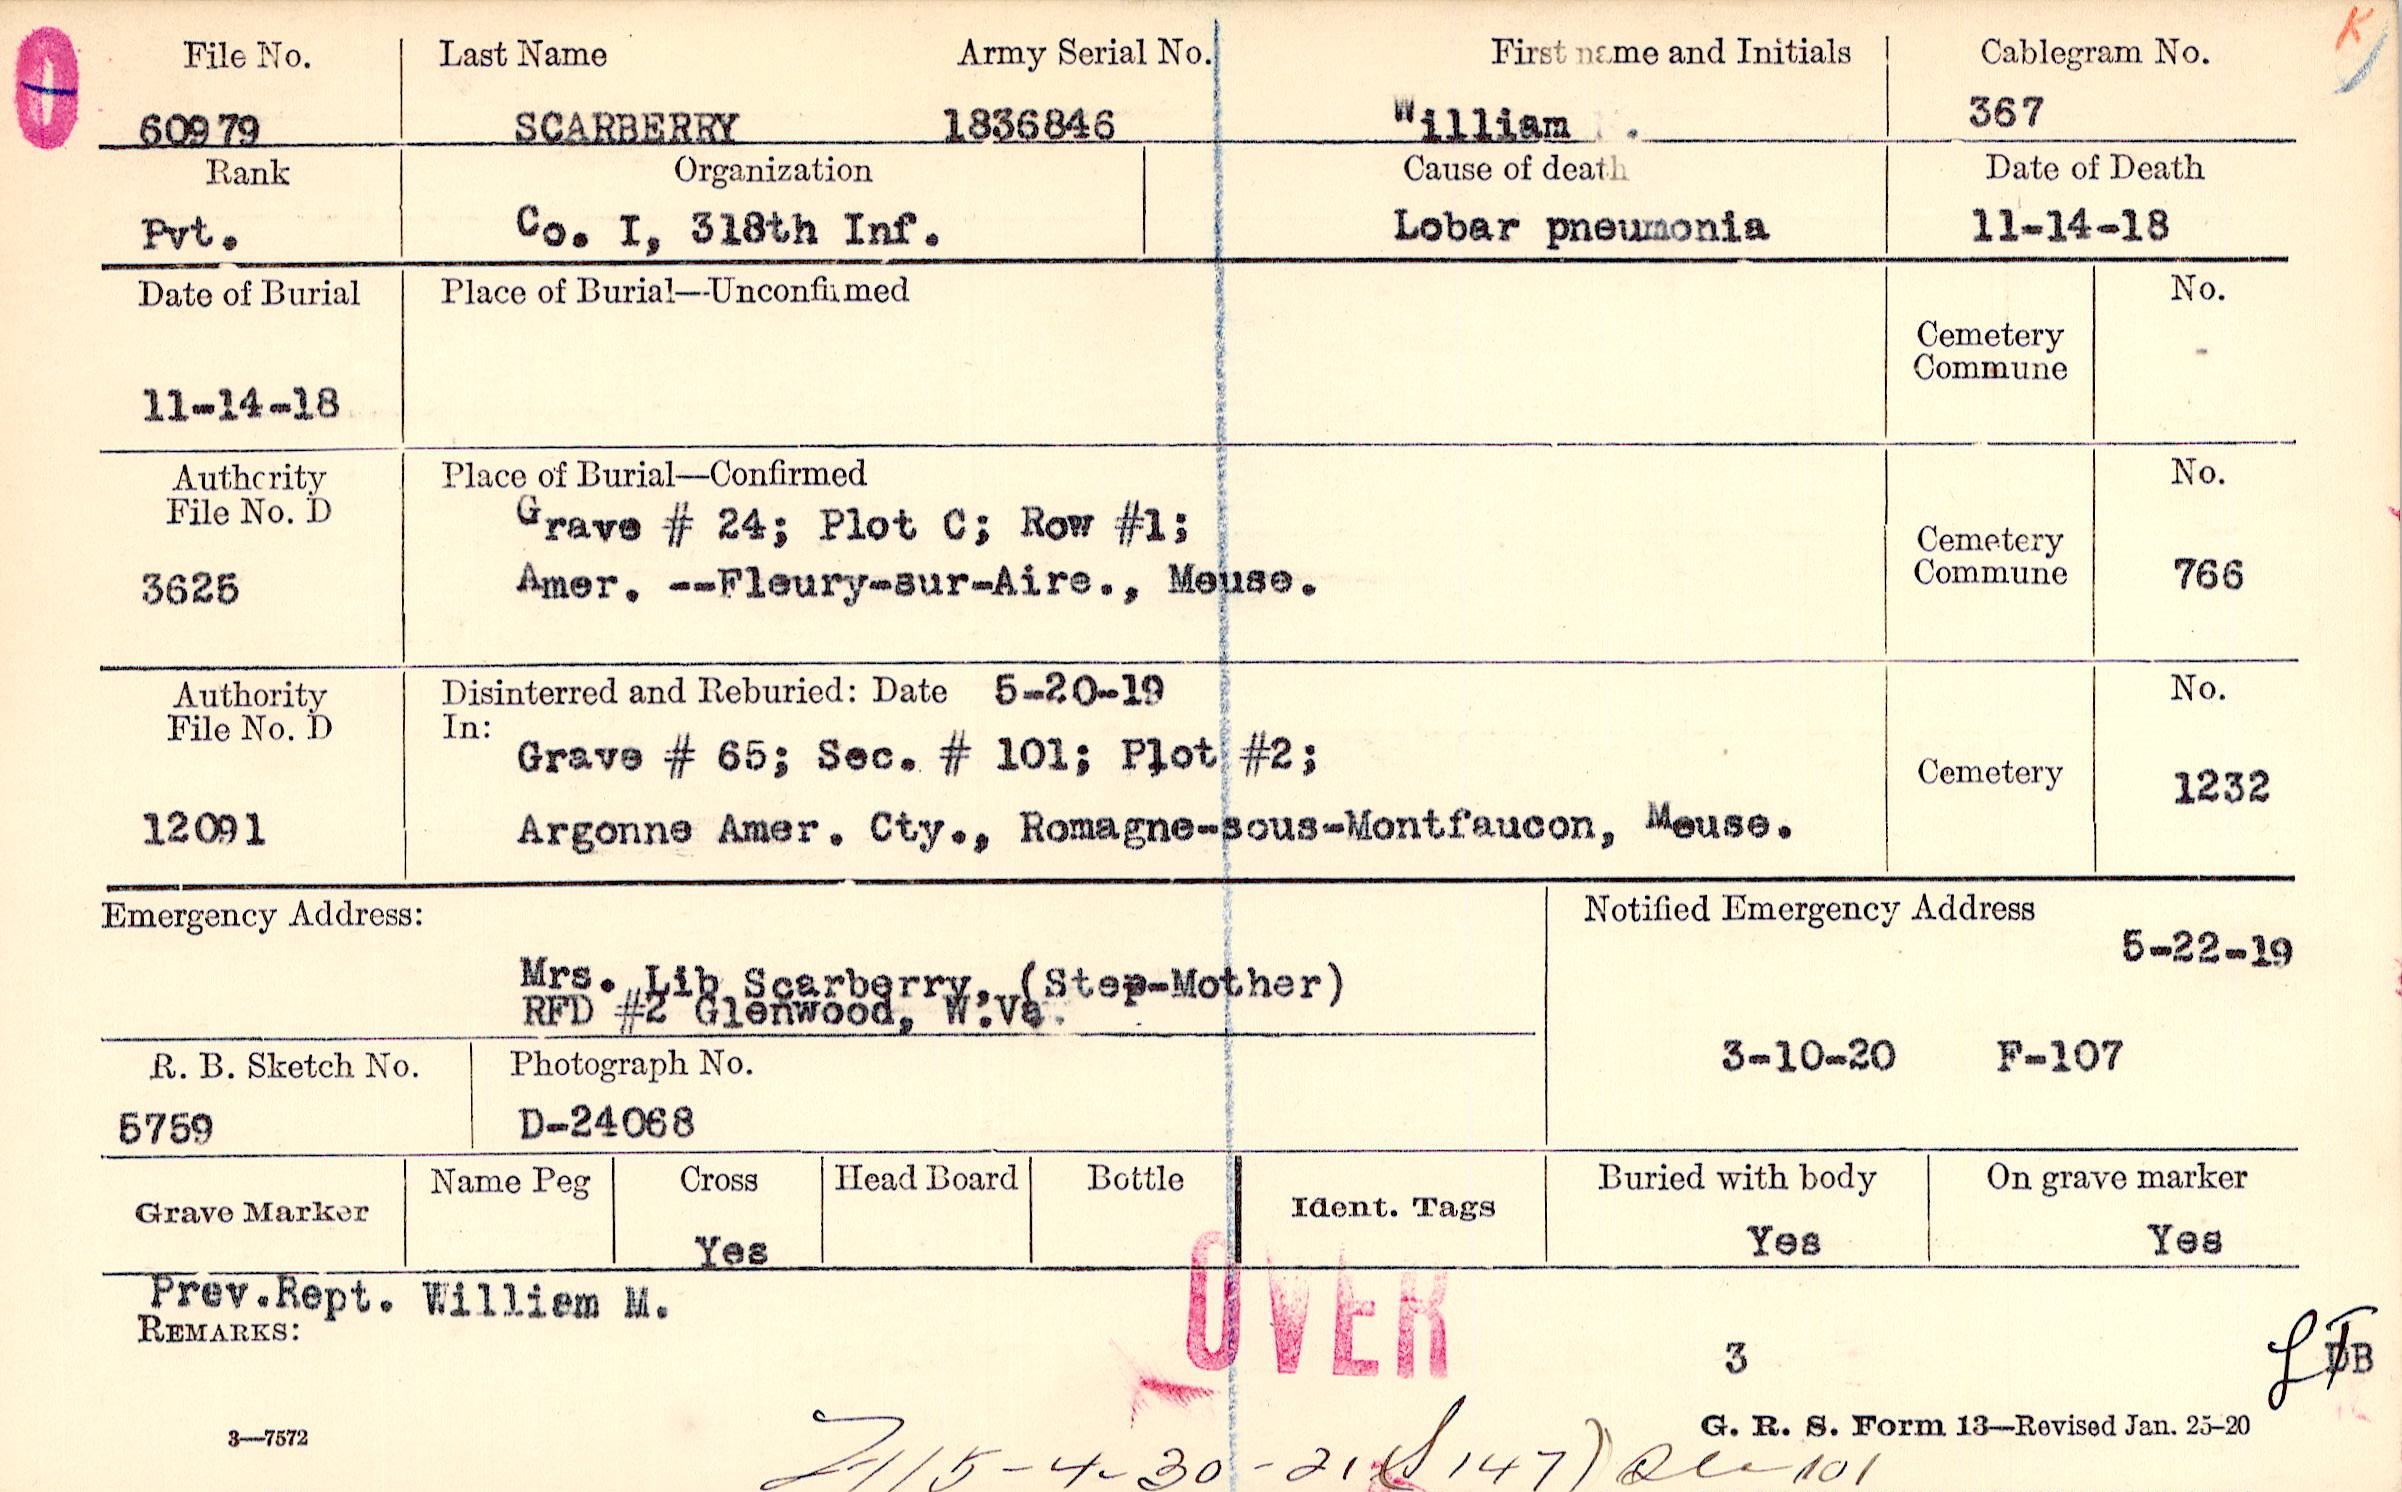 K
File No. Last Name Army Serial No. First name and Initials Cablegram No.
60979 SCARBERRY 1836846 William . 367
Rank Organization Cause of death Date of Death
Pvt. Co. I, 318th Inf. Lobar pneumonia 11-14-18
Date of Burial Place of Burial—Unconfirmed No.
Cemetery
Commune -
11-14-18
Authority Place of Burial—Confirmed No.
File No. D Grave # 24; Plot C; Row #1;
Cemetery
3625 Amer. --Fleury-sur-Aire., Meuse. Commune 766
Authority Disinterred and Reburied: Date 5-20-19 No.
File No. D In:
Grave # 65; Sec. # 101; Plot #2; Cemetery 1232
12091 Argonne Amer. Cty., Romagne-sous-Montfaucon, Meuse.
Emergency Address: Notified Emergency Address
5-22-19
Mrs. Lib Scarberry, (Step-Mother)
RFD #2 Glenwood, W.Va.
R. B. Sketch No. Photograph No. 3-10-20 F-107
5759 D-24068
Grave Marker Name Peg Cross Head Board Bottle Ident. Tags Buried with body On grave marker
Yes Yes Yes
Prev.Rept. William M.
REMARKS: OVER
3 DB
3—7572 G. R. S. Form 13—Revised Jan. 25-20
115-4-30-21 (S 147) 101